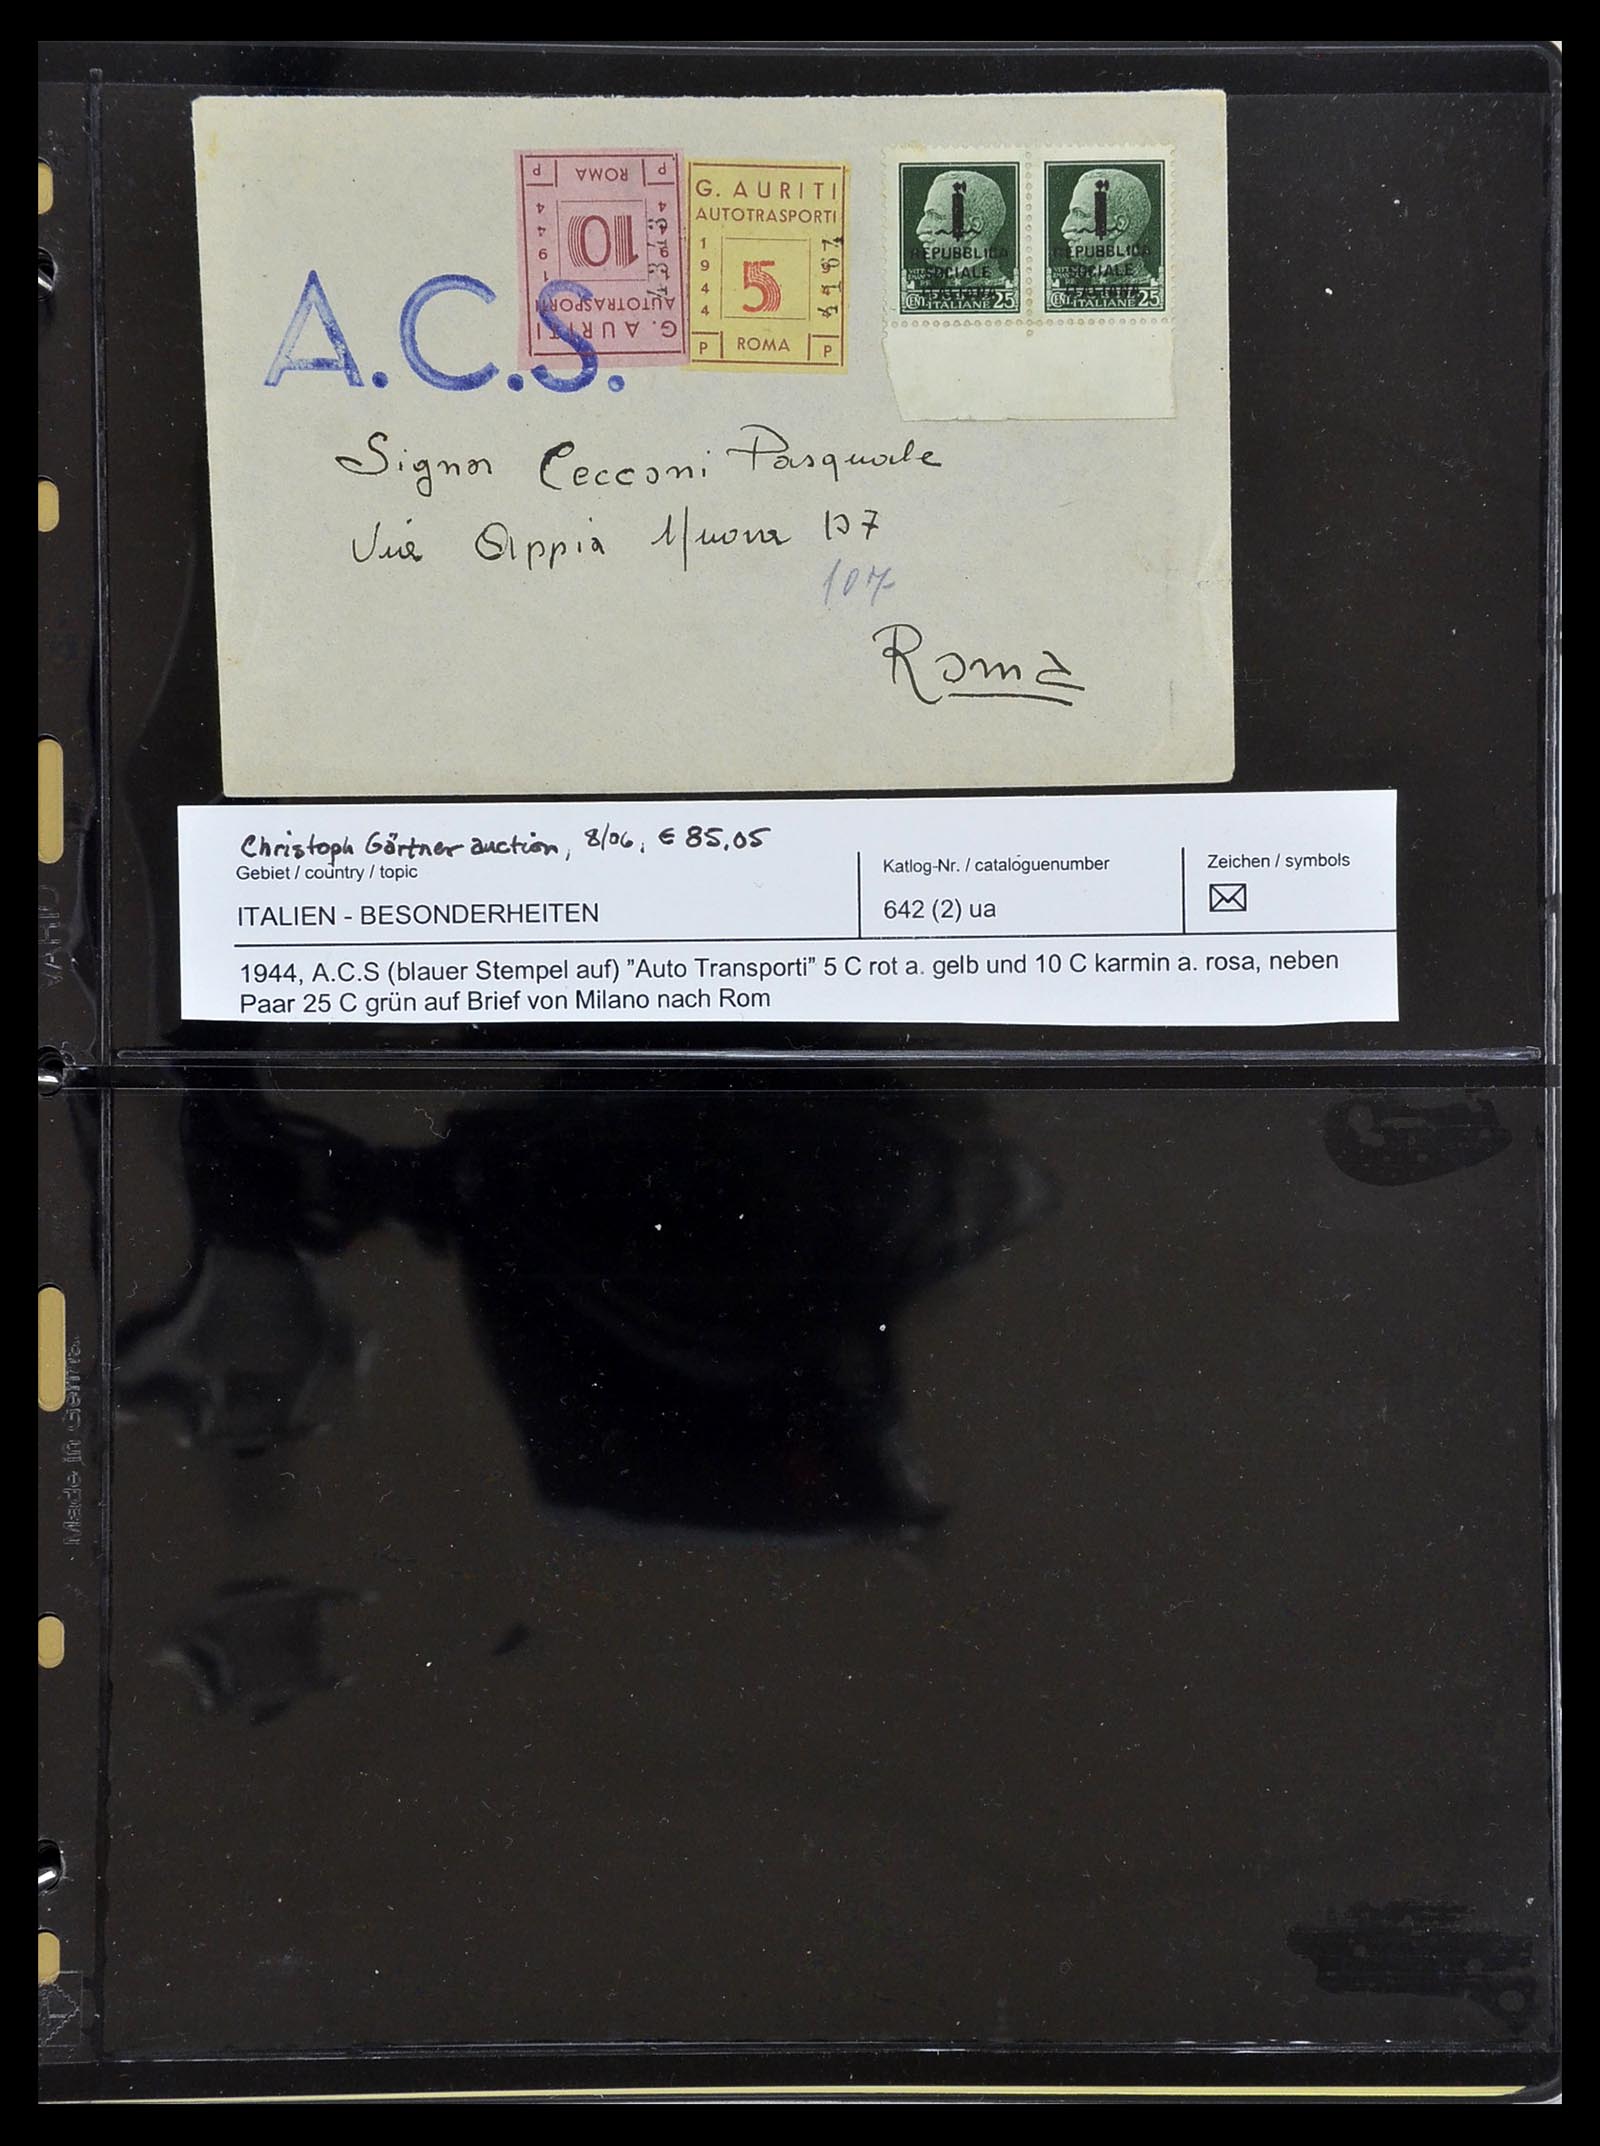 ROMA
P P
10
1944 1944
AUTOTRASPORTI
G. AURITI
G. AURITI
AUTOTRASPORTI
1944 1944
5
P ROMA P
REPUBBLICA REPUBBLICA
SOCIALE SOCIALE
ITALIANA ITALIANA
CENT. 25 CENT. 25
A.C.S.
Signor Cecconi Pasquale
Via Appia Nuova 107
107
Roma
Christoph Gärtner auction, 8/06, € 85,05
Gebiet / country / topic
Katlog-Nr. / cataloguenumber
Zeichen / symbols
ITALIEN - BESONDERHEITEN
642 (2) ua
1944, A.C.S (blauer Stempel auf) ”Auto Transporti” 5 C rot a. gelb und 10 C karmin a. rosa, neben
Paar 25 C grün auf Brief von Milano nach Rom
VARIO
Made in Germa